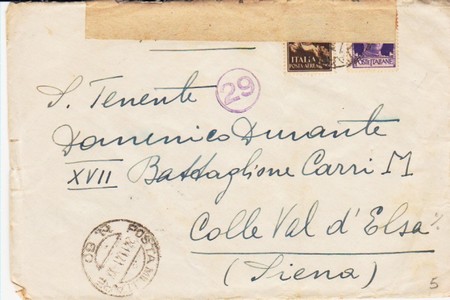 ITALIA
POSTA AEREA
POSTE ITALIANE
29
S. Tenente
Domenico Durante
XVII Battaglione Carri M
Colle Val d'Elsa
(Siena)
POSTA MILITARE
5